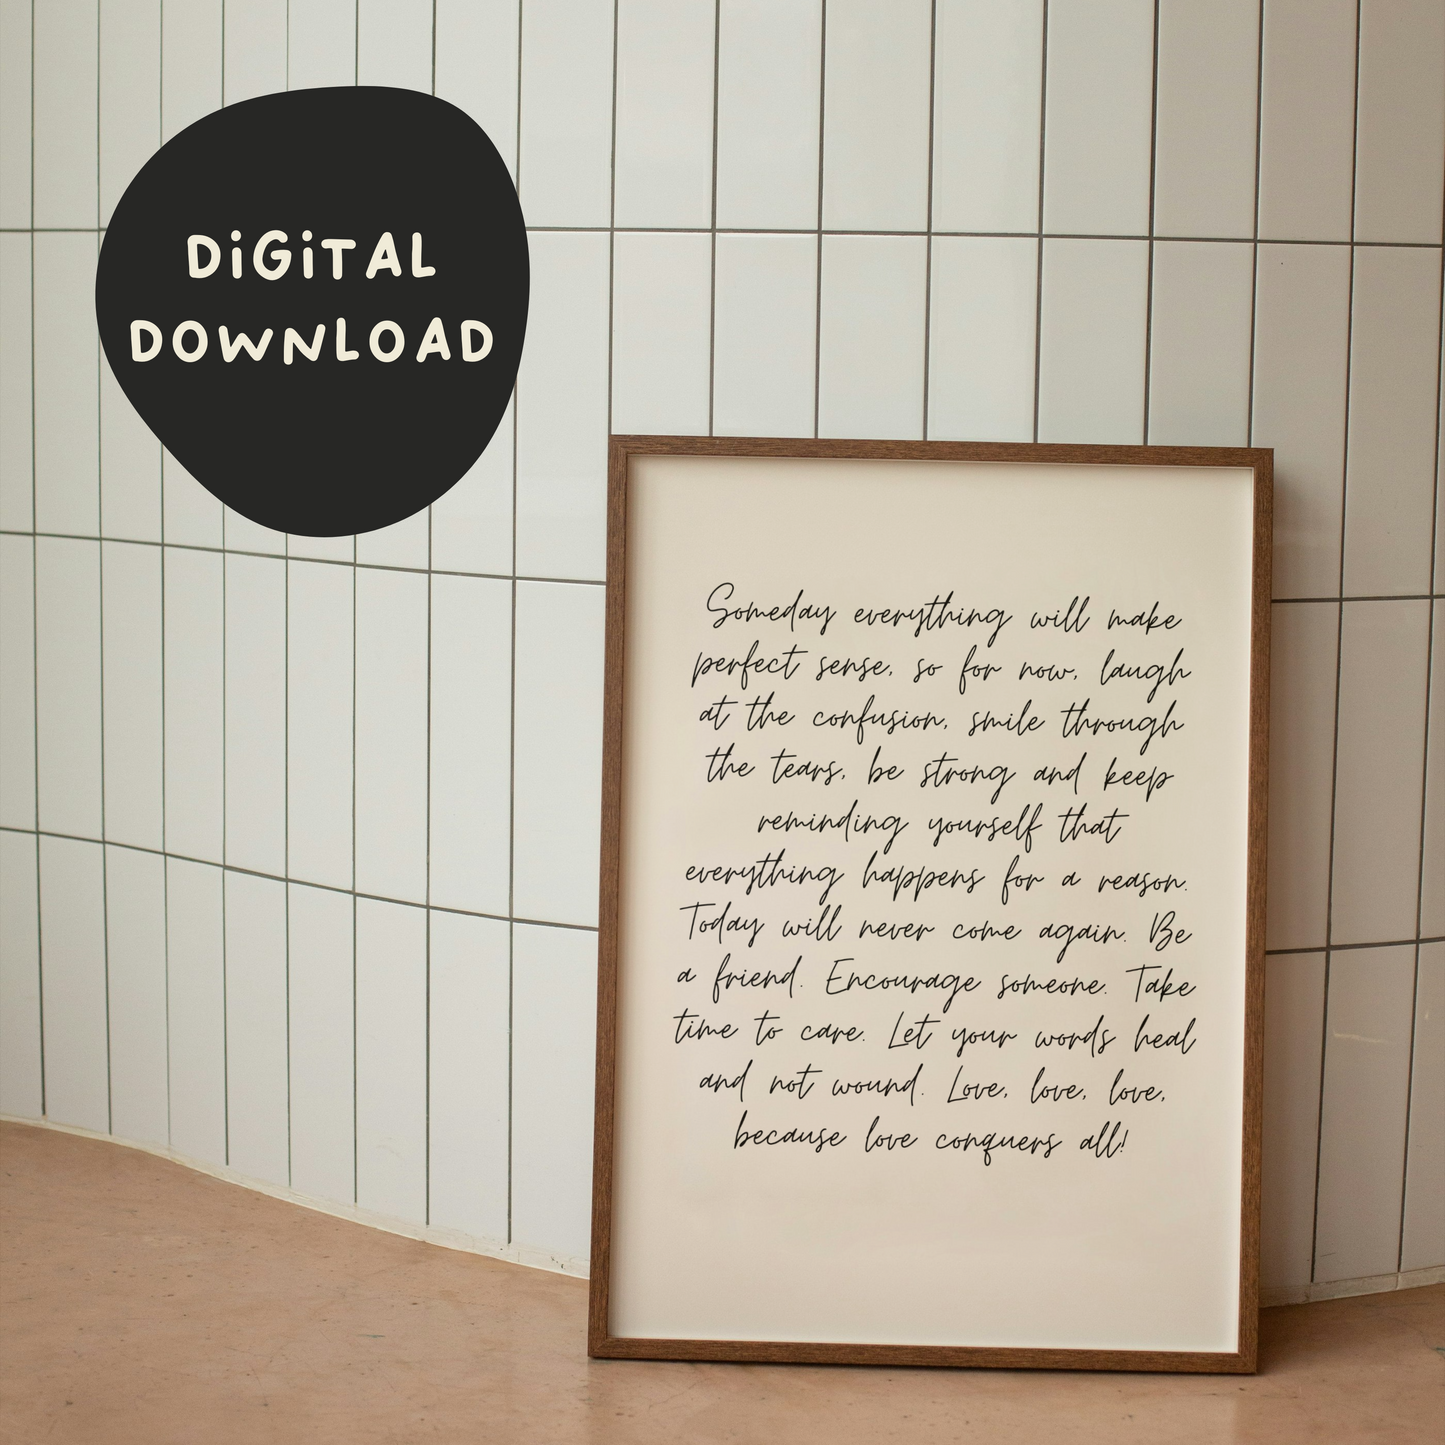 DiGiTAL
DOWNLOAD
Someday everything will make
perfect sense, so for now, laugh
at the confusion, smile through
the tears, be strong and keep
reminding yourself that
everything happens for a reason.
Today will never come again. Be
a friend. Encourage someone. Take
time to care. Let your words heal
and not wound. Love, love, love,
because love conquers all!